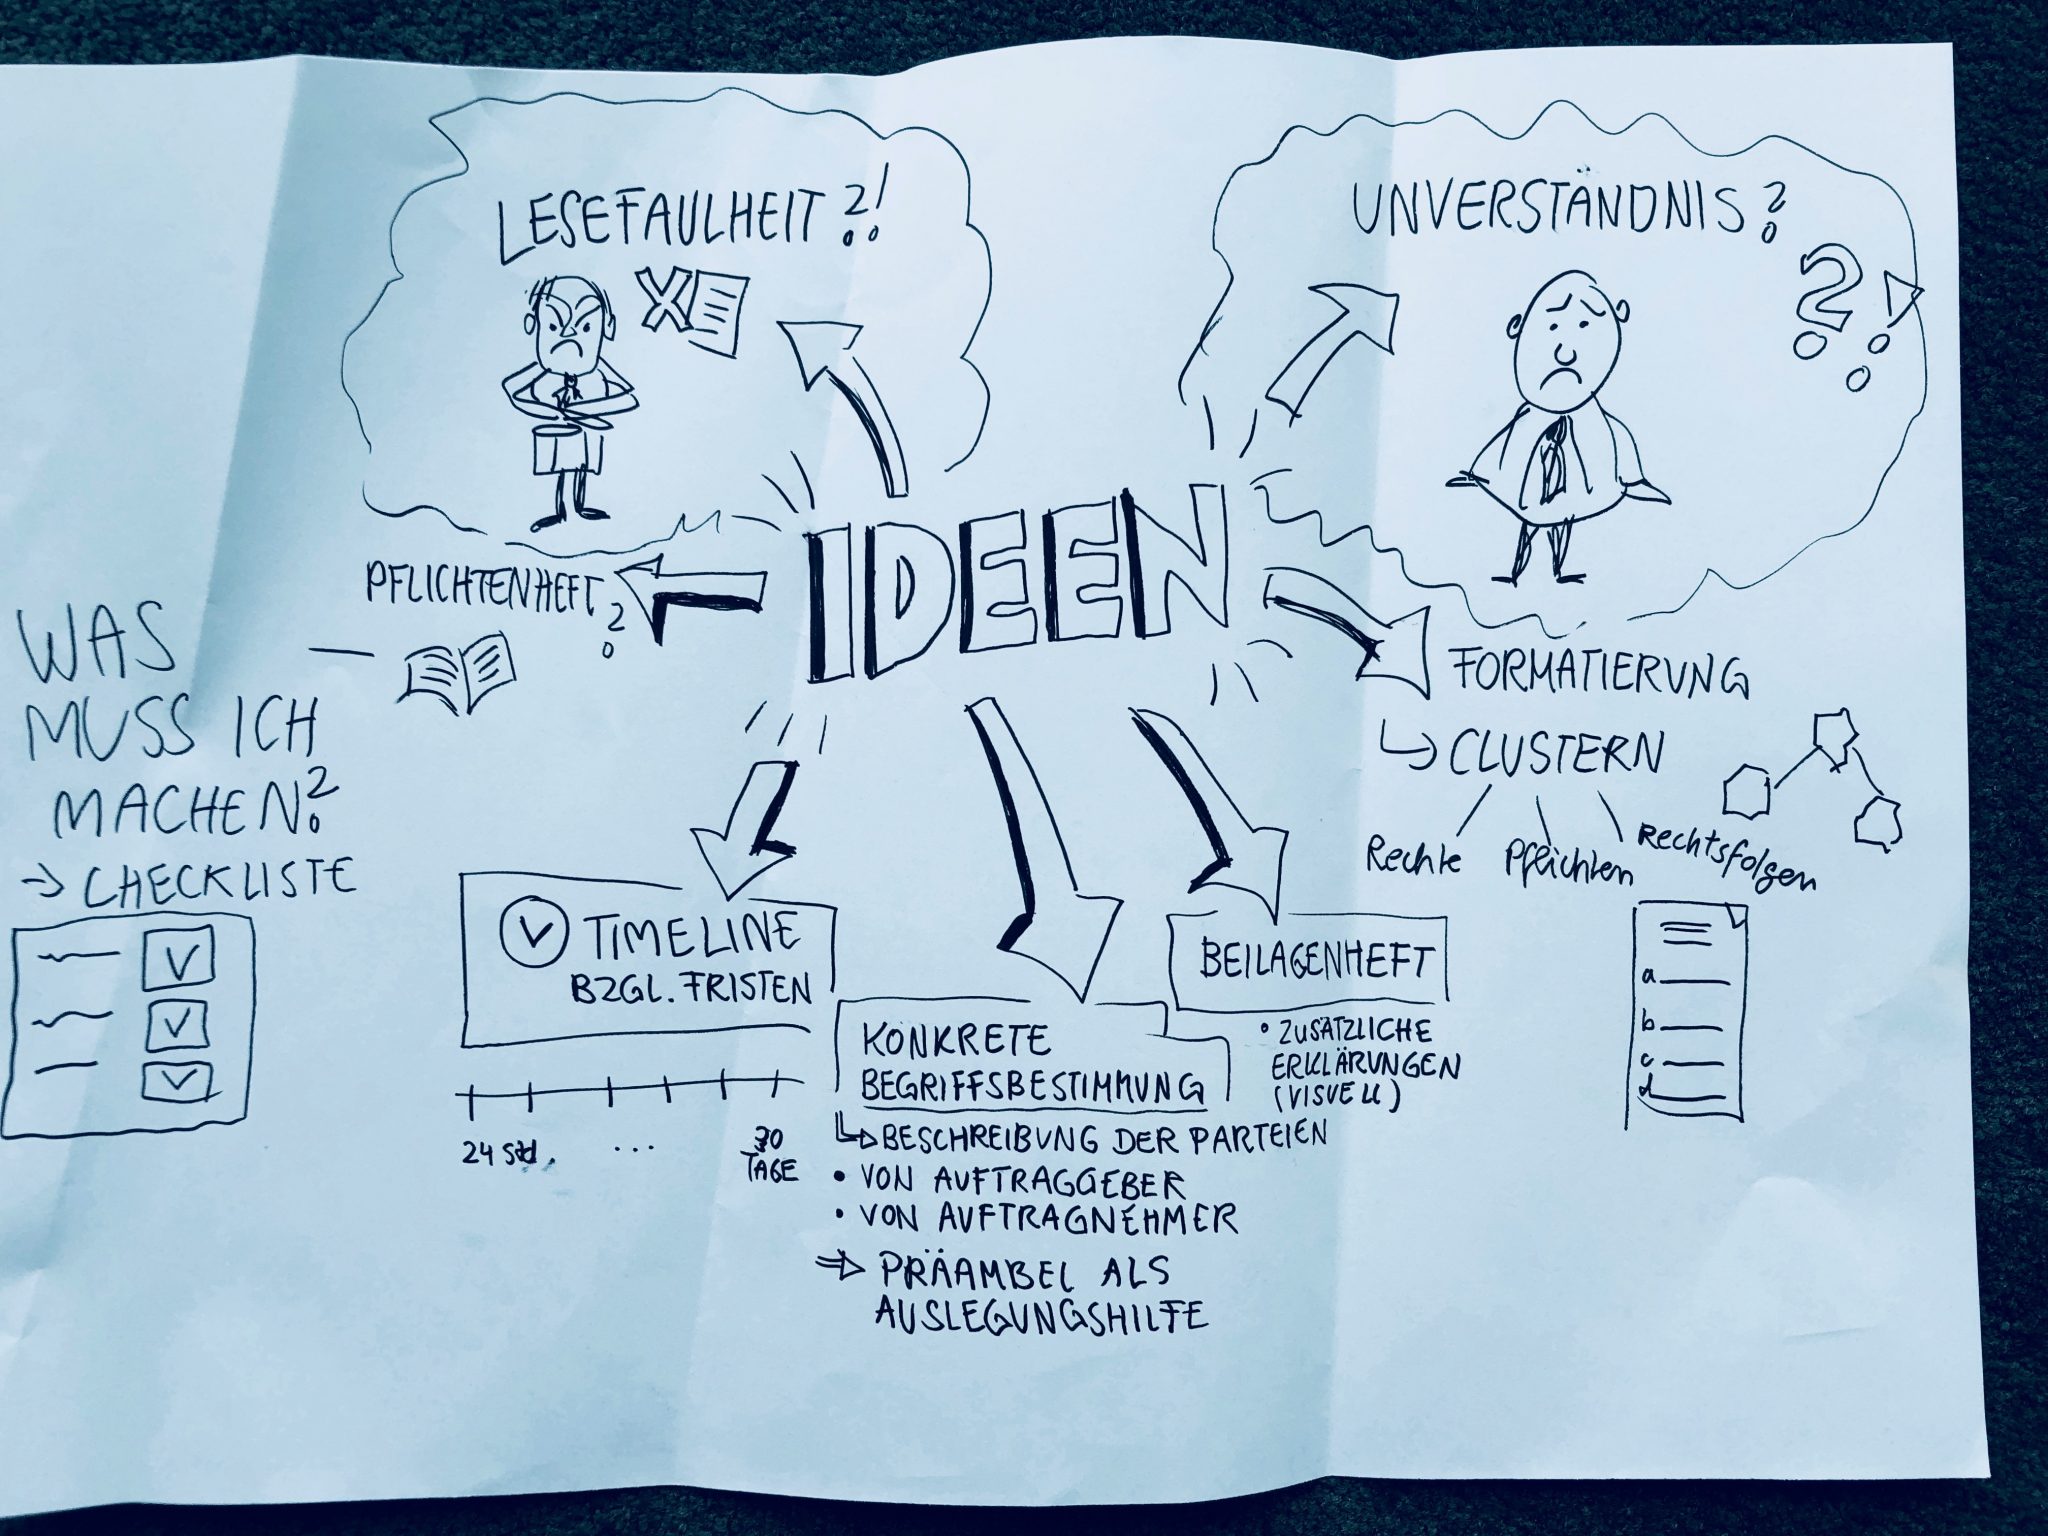 LESEFAULHEIT?!
X
UNVERSTÄNDNIS?
?!
IDEEN
PFLICHTENHEFT?
WAS
MUSS ICH
MACHEN?
→ CHECKLISTE
FORMATIERUNG
↳ CLUSTERN
Rechte Pflichten Rechtsfolgen
a
b
c
d
TIMELINE
BZGL. FRISTEN
24 Std. ... 30
TAGE
BEILAGENHEFT
• ZUSÄTZLICHE
ERKLÄRUNGEN
(VISUELL)
KONKRETE
BEGRIFFSBESTIMMUNG
↳ BESCHREIBUNG DER PARTEIEN
• VON AUFTRAGGEBER
• VON AUFTRAGNEHMER
⇒ PRÄAMBEL ALS
AUSLEGUNGSHILFE